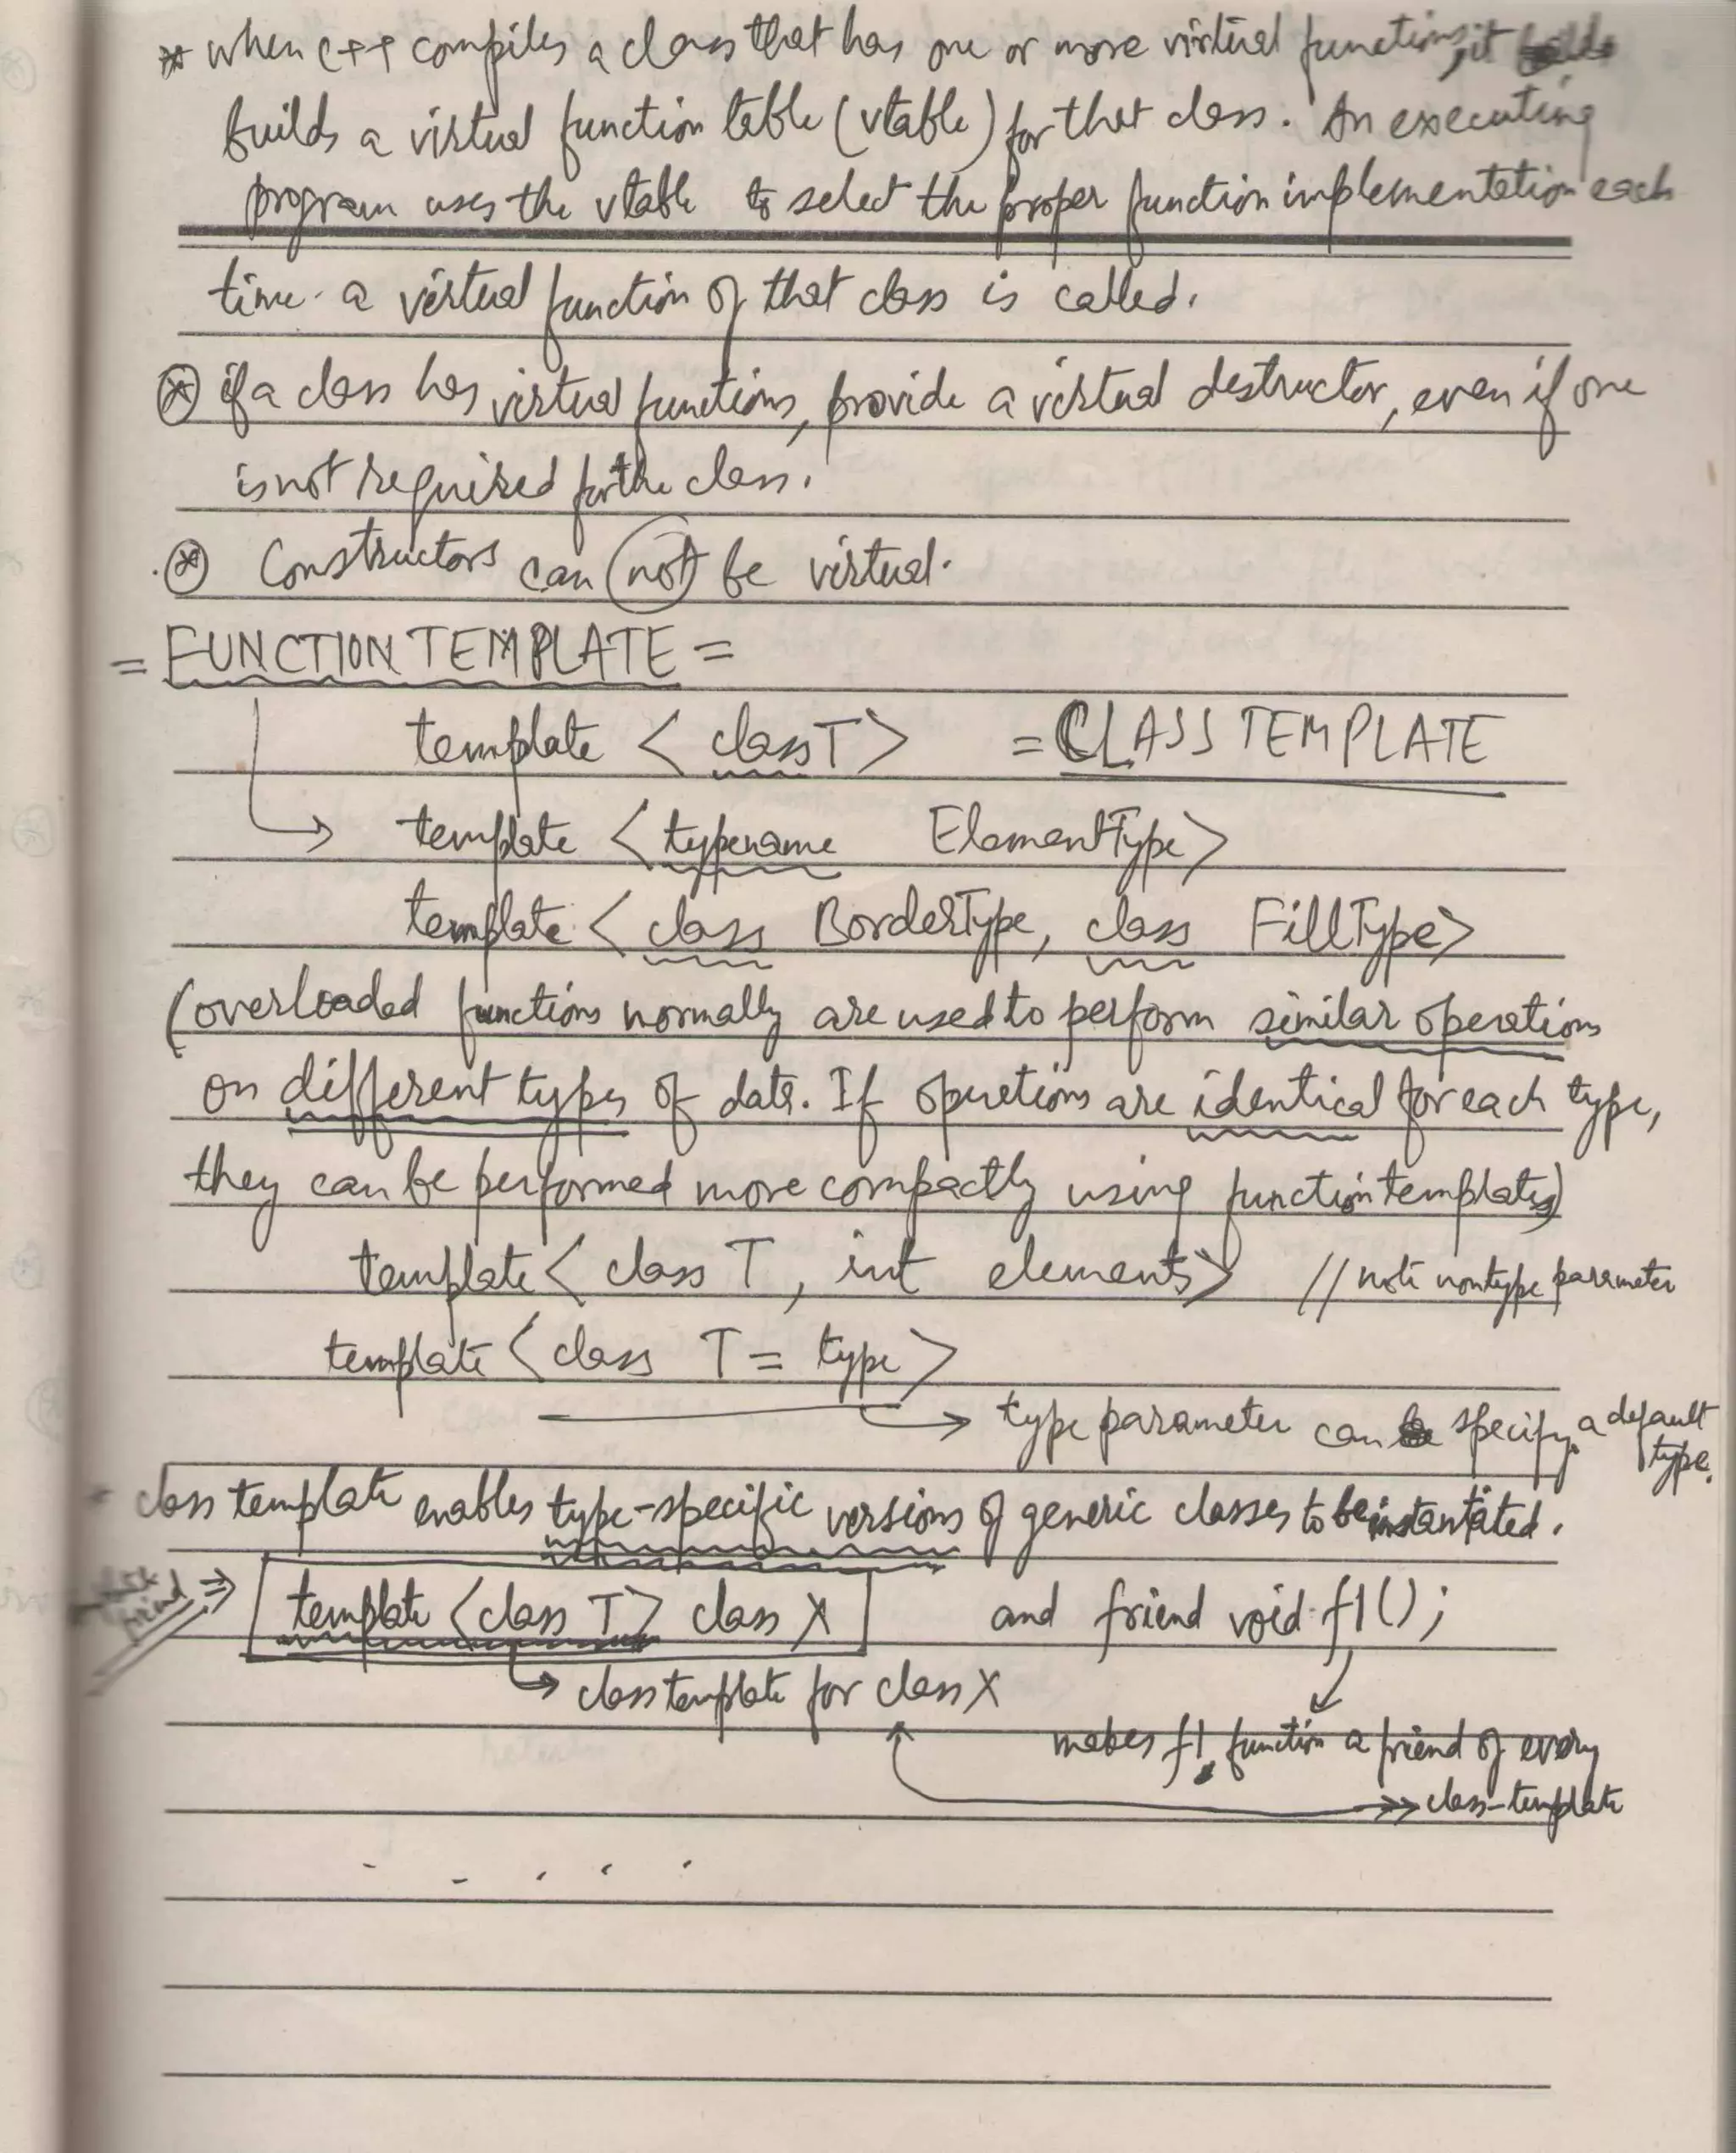 * when c++ compiles a class that has one or more virtual functions, it
builds a virtual function table (vtable) for that class. An executing
program uses the vtable to select the proper function implementation each
time a virtual function of that class is called.
* if a class has virtual functions, provide a virtual destructor, even if one
is not required for the class.
* Constructors can not be virtual.
= FUNCTION TEMPLATE =
template < class T > = CLASS TEMPLATE
→ template < typename ElementType >
template < class BorderType, class FillType >
(overloaded functions normally are used to perform similar operations
on different types of data. If operations are identical for each type,
they can be performed more compactly using function templates)
template < class T, int elements > // note nontype parameter
template < class T = type >
→ type parameter can specify a default
type.
- class template enables type-specific versions of generic classes to be instantiated.
⇒ template <class T> class X and friend void f1();
→ class template for class X
makes f1 function a friend of every
class-template